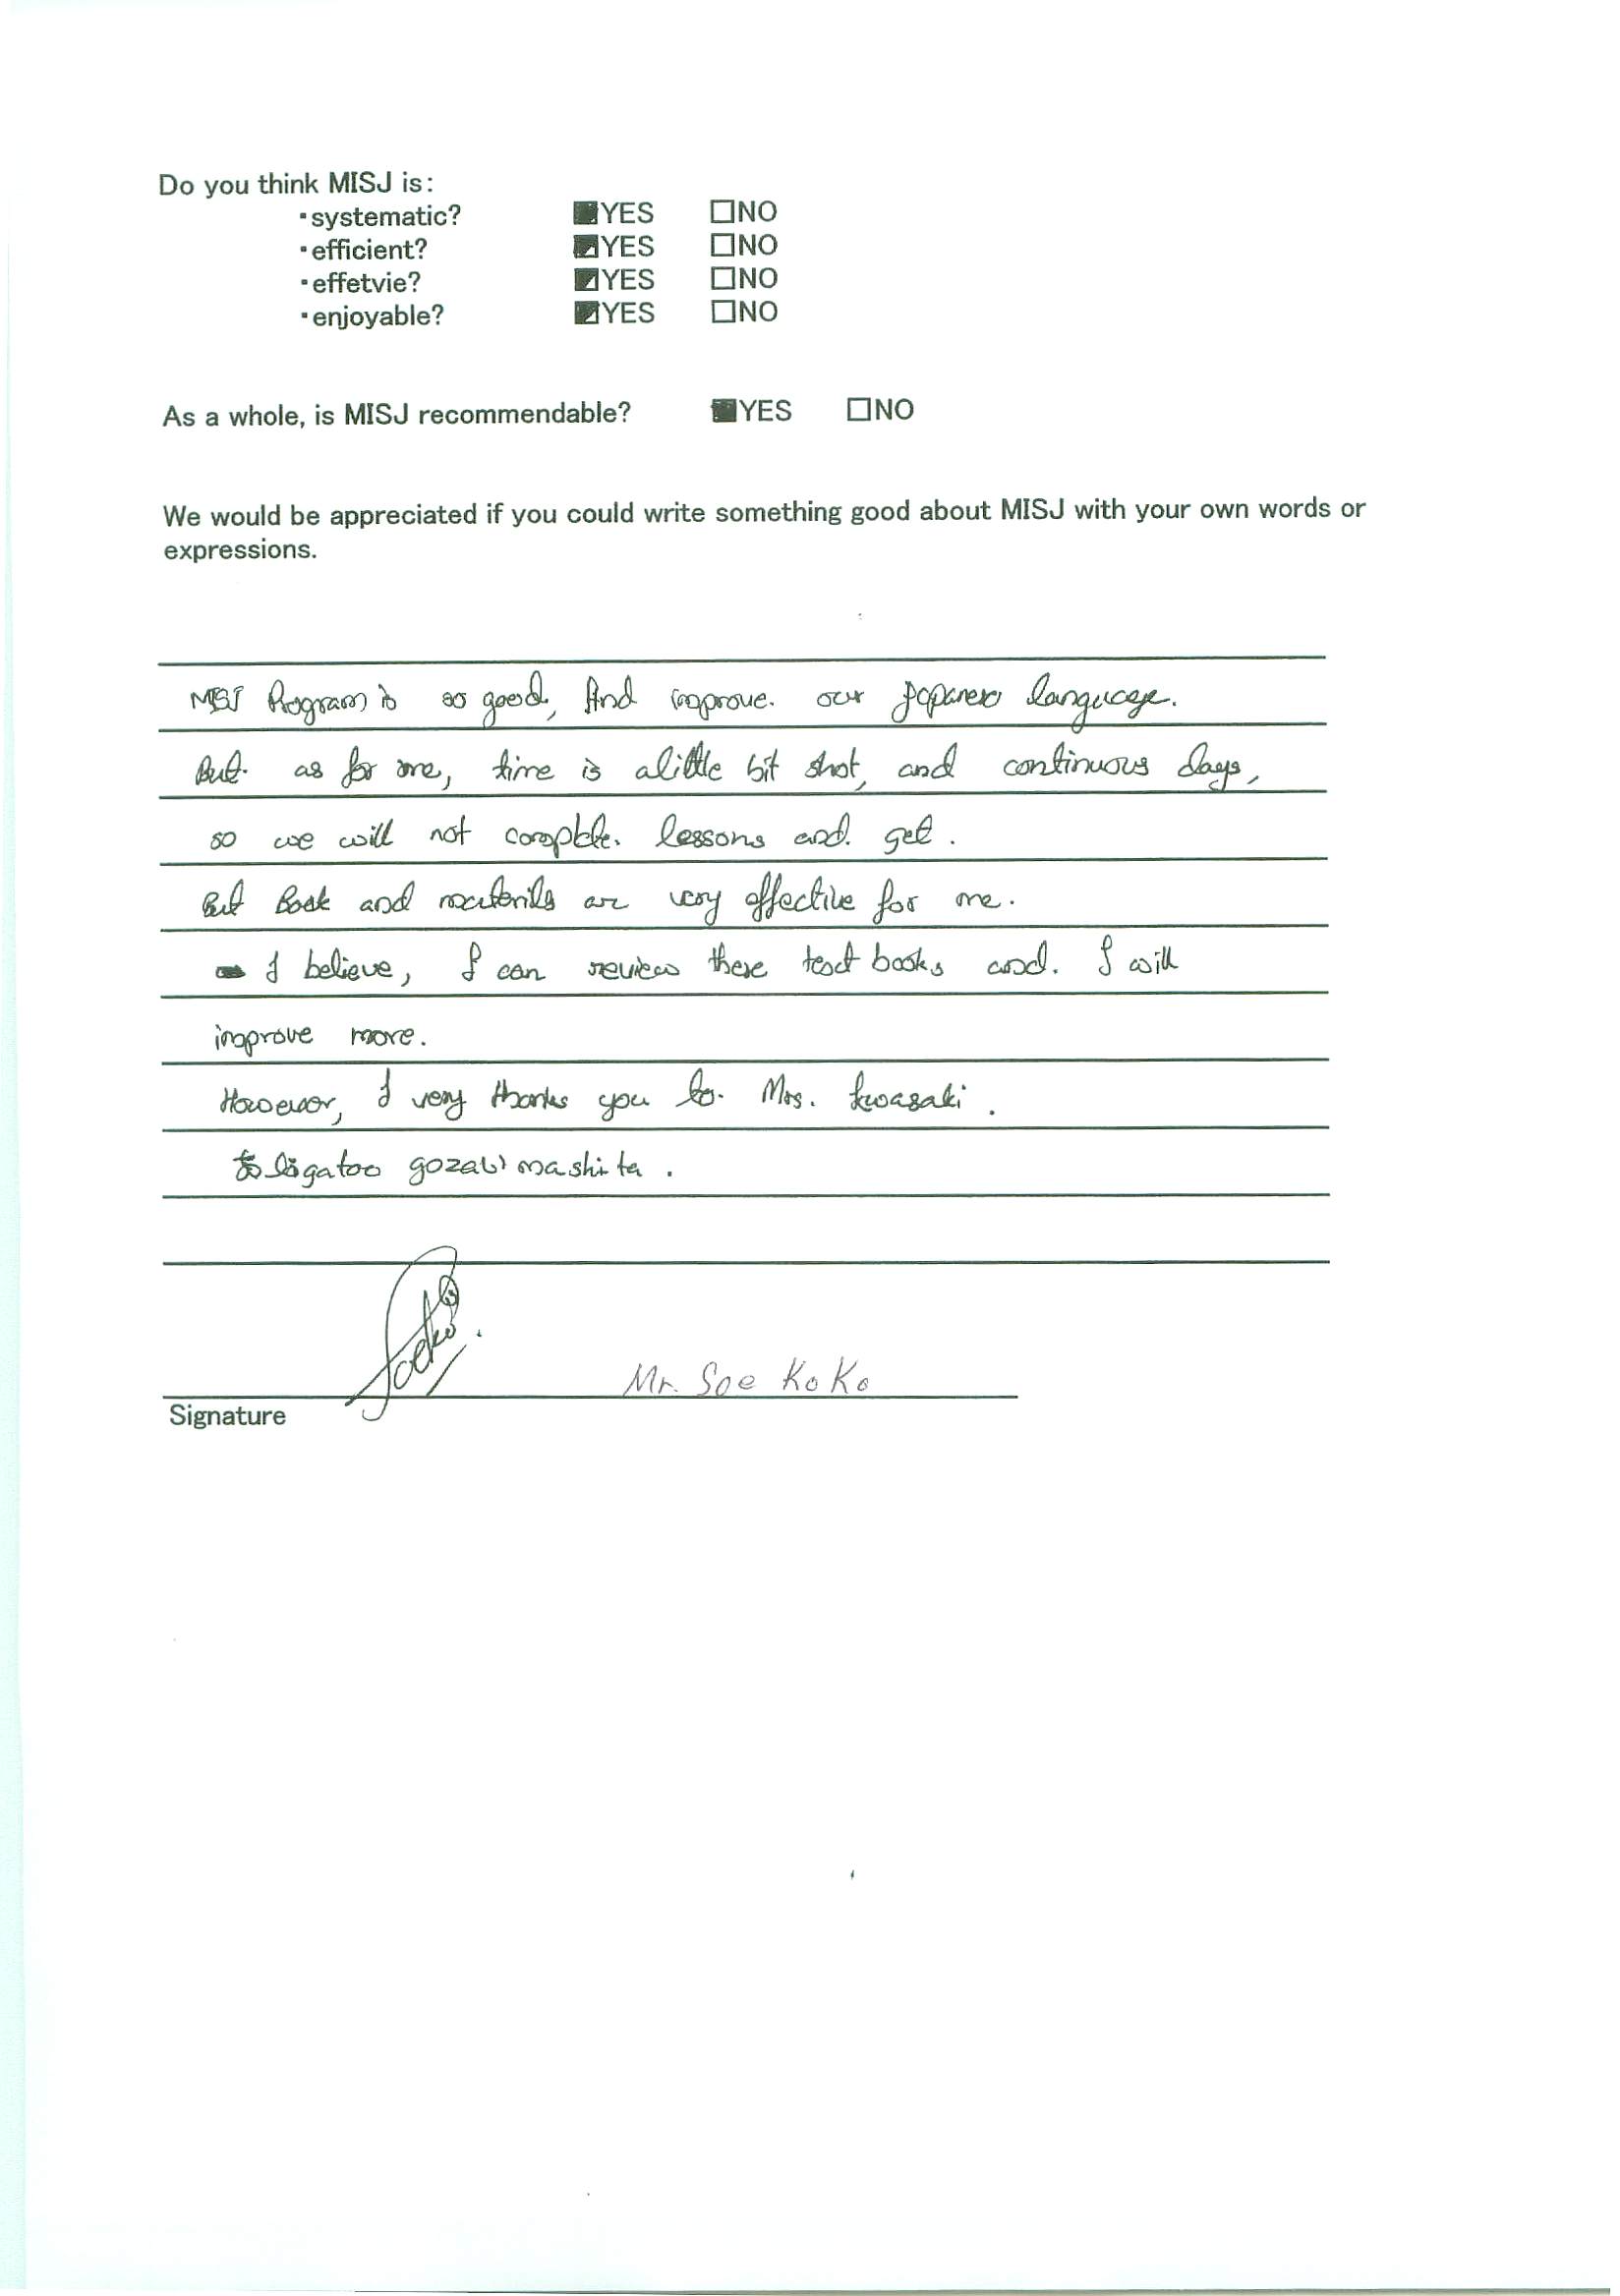 Do you think MISJ is:
・systematic? ■YES □NO
・efficient? ■YES □NO
・effetvie? ■YES □NO
・enjoyable? ■YES □NO
As a whole, is MISJ recommendable? ■YES □NO
We would be appreciated if you could write something good about MISJ with your own words or
expressions.
MISJ Program is so good, And improve. our Japanese language.
But. as for me, time is alittle bit shot, and continuous days,
so we will not complete. lessons and. get.
But Book and materials are very effective for me.
I believe, I can review these text books and. I will
improve more.
However, I very thanks you to. Mrs. Iwasaki.
gozaimashita.
Mr. Soe Ko Ko
Signature